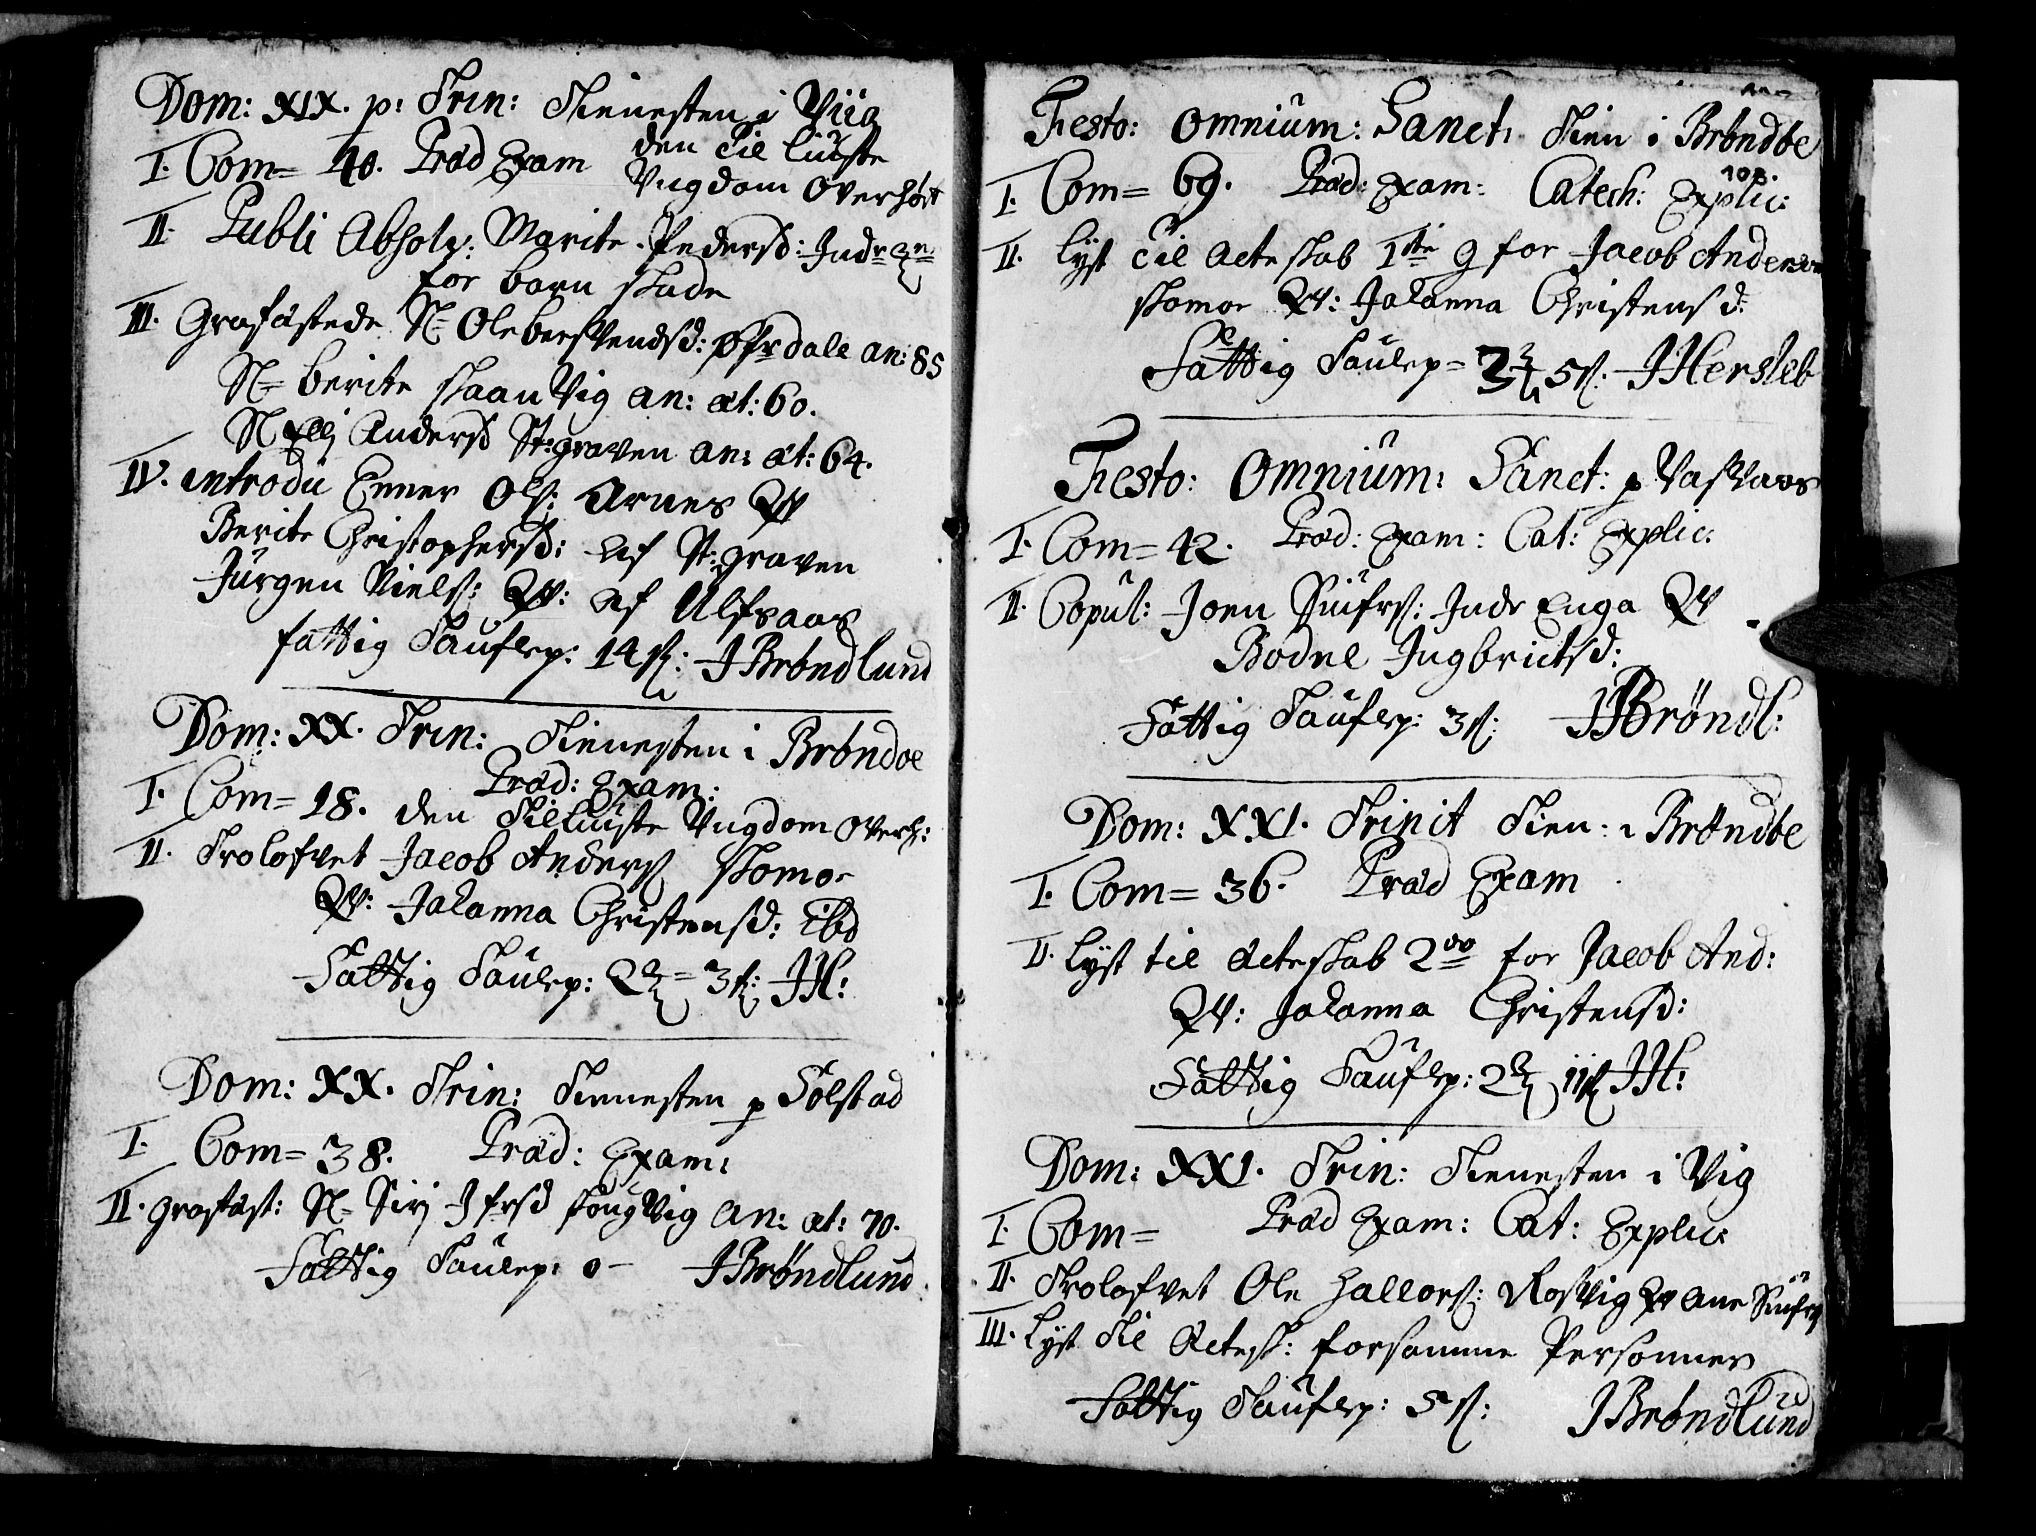 Dom: XIX. p: Trin: Tienesten i Viig
I. Com= 40. Præd Exam den til liuste
Vngdom overhørt
II. Publi Absolv: Marite Pedersd: Indr
for barn skade
III. Grafæstede N= Ole bersvendsd: dale an: 85
N= berite skaan Vig an: æt: 60.
N Andersd St: graven an: æt: 64.
IV. introdu Enner Ols: Arnes Qv
Berite Christophersd: af St: graven
Jürgen Niels: Qv: af Ulfsaas
fattig Taufler: 14 s: J Bröndlund
Dom: XX. Trin: Tienesten i Bröndöe
Præd: Exam:
I. Com= 18. den Tilliuste Vngdom overh:
II. Trolofvet Jacob Anders skomor
Qv: Johanna Christensd: ibd
Fattig Taulep: 2 = 3 s: JH:
Dom: XX. Trin: Tienesten p Solstad
I. Com= 38. Præd: Exam:
II. grafæst: N= Siri skougvig an: æt: 70.
Fattig Taulep: 0 – J Bröndlund
Festo: Omnium: Sanct: Tien i Bröndöe
108.
I. Com= 69. Præd: Exam: Catech: Explic:
II. lyst til Acteskab 1ste g for Jacob Anders
skomor Qv: Johanna Christensd:
Fattig Taulep= 3 5 s: JHersleb
Festo: Omnium: Sanct: p
I. Com= 42. Præd: Exam: Cat: Explic:
II. Copul: Joen Siufrs: Indr Enga Qv
Bodel Ingbrictsd:
Fattig Taufler: 3 s: JBröndl:
Dom: XXI. Trinit Tien: i Bröndöe
I. Com= 36. Præd Exam
II. lyst til Acteskab 2do for Jacob And:
Qv: Johanna Christensd:
Fattig Taufler: 2 11 s JH:
Dom: XXI. Trin: Tienesten i Vig
I. Com= Præd Exam: Cat: Explic:
II. Trolofvet Ole Hallors: Rosvig Qv Ane
III. Lyst til Actesk: forsamme Personner
Fattig Taufler: 5 s: J Bröndlund